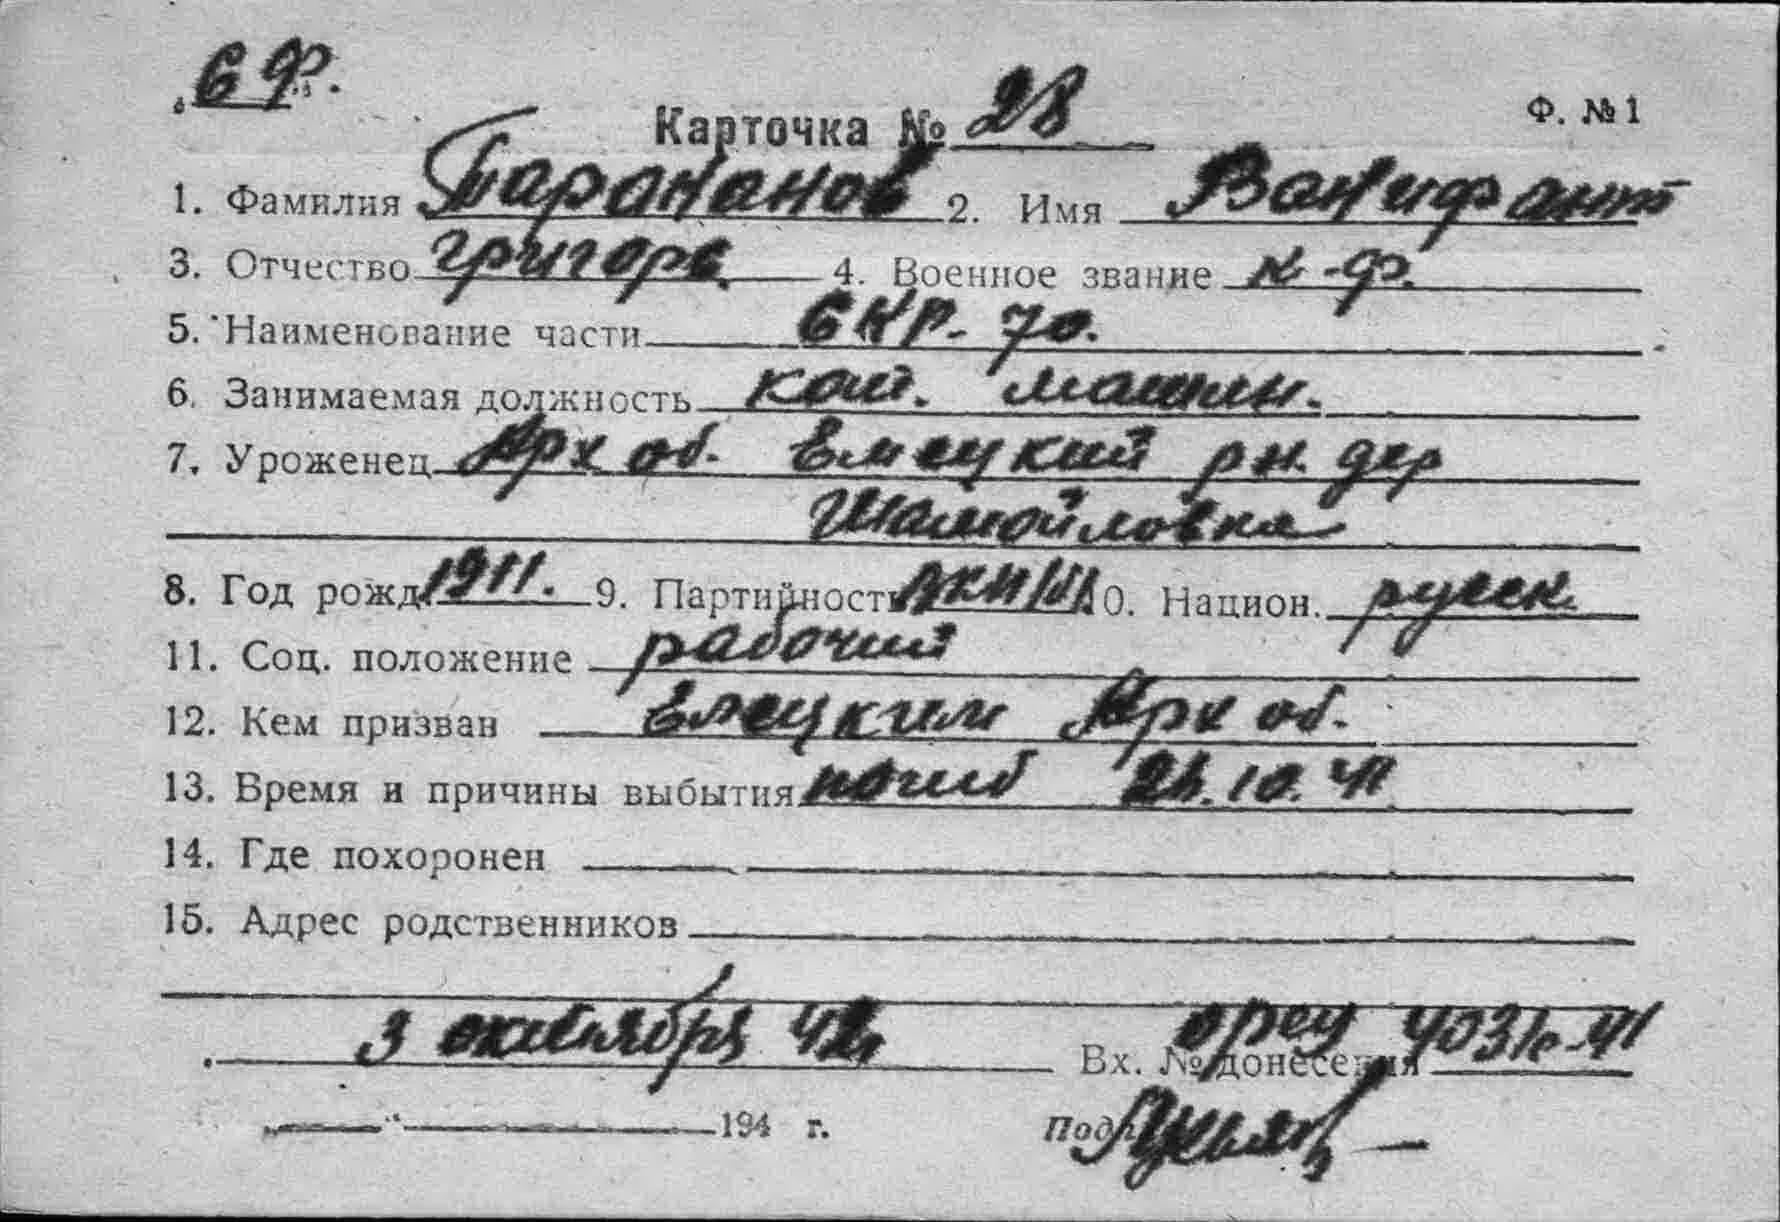 СФ.
Карточка № 28 Ф. № 1
1. Фамилия Тараканов 2. Имя Ванифант
3. Отчество Григорв. 4. Военное звание к-ф.
5. Наименование части СКР-70.
6. Занимаемая должность кот. машин.
7. Уроженец Арх об. Емецкий рн. дер
Шамойловка
8. Год рожд. 1911. 9. Партийность 10. Национ. русск.
11. Соц. положение рабочий
12. Кем призван Емецким Арх об.
13. Время и причины выбытия погиб 10. 41
14. Где похоронен
15. Адрес родственников
3 октября 42
Вх. № донесения 4031с-41
194 г. Подп